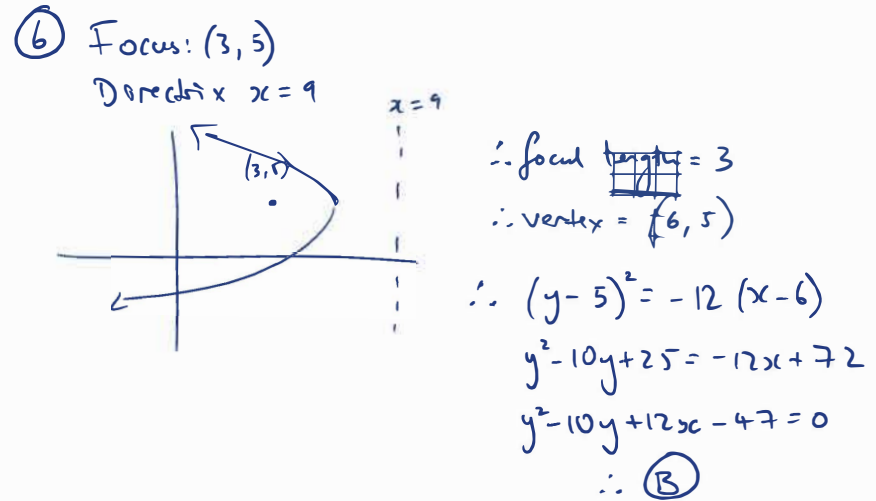 ⑥ Focus: (3, 5)
Directrix x = 9
x = 9
(3, 5)
∴ focal length = 3
∴ vertex = (6, 5)
∴ (y - 5)² = -12 (x - 6)
y² - 10y + 25 = -12x + 72
y² - 10y + 12x - 47 = 0
∴ Ⓑ